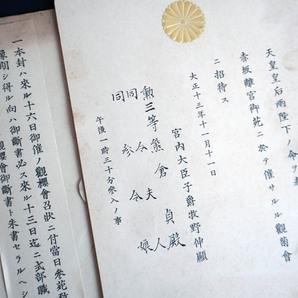 天皇皇后両陛下ノ命ヲ奉
赤坂離宮御苑ニ於テ催サルル観菊會
ニ招待ス
大正十三年十一月十一日
宮内大臣子爵牧野伸顯
勲三等熊倉貞殿
同 令夫人
同 令娘
午後一時三十分参入ノ事
一本封ハ來ル十六日御催ノ觀櫻會召狀ニ付當日來苑
シ得ル向ハ御斷書
來ル十三日迄ニ式部職
觀櫻會御斷書ト朱書セラルヘシ